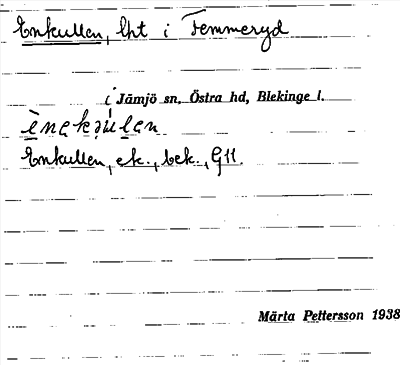 Enkullen, lht i Femmeryd
i Jämjö sn, Östra hd, Blekinge l.
Enkullen, ek., bek., G11.
Märta Pettersson 1938